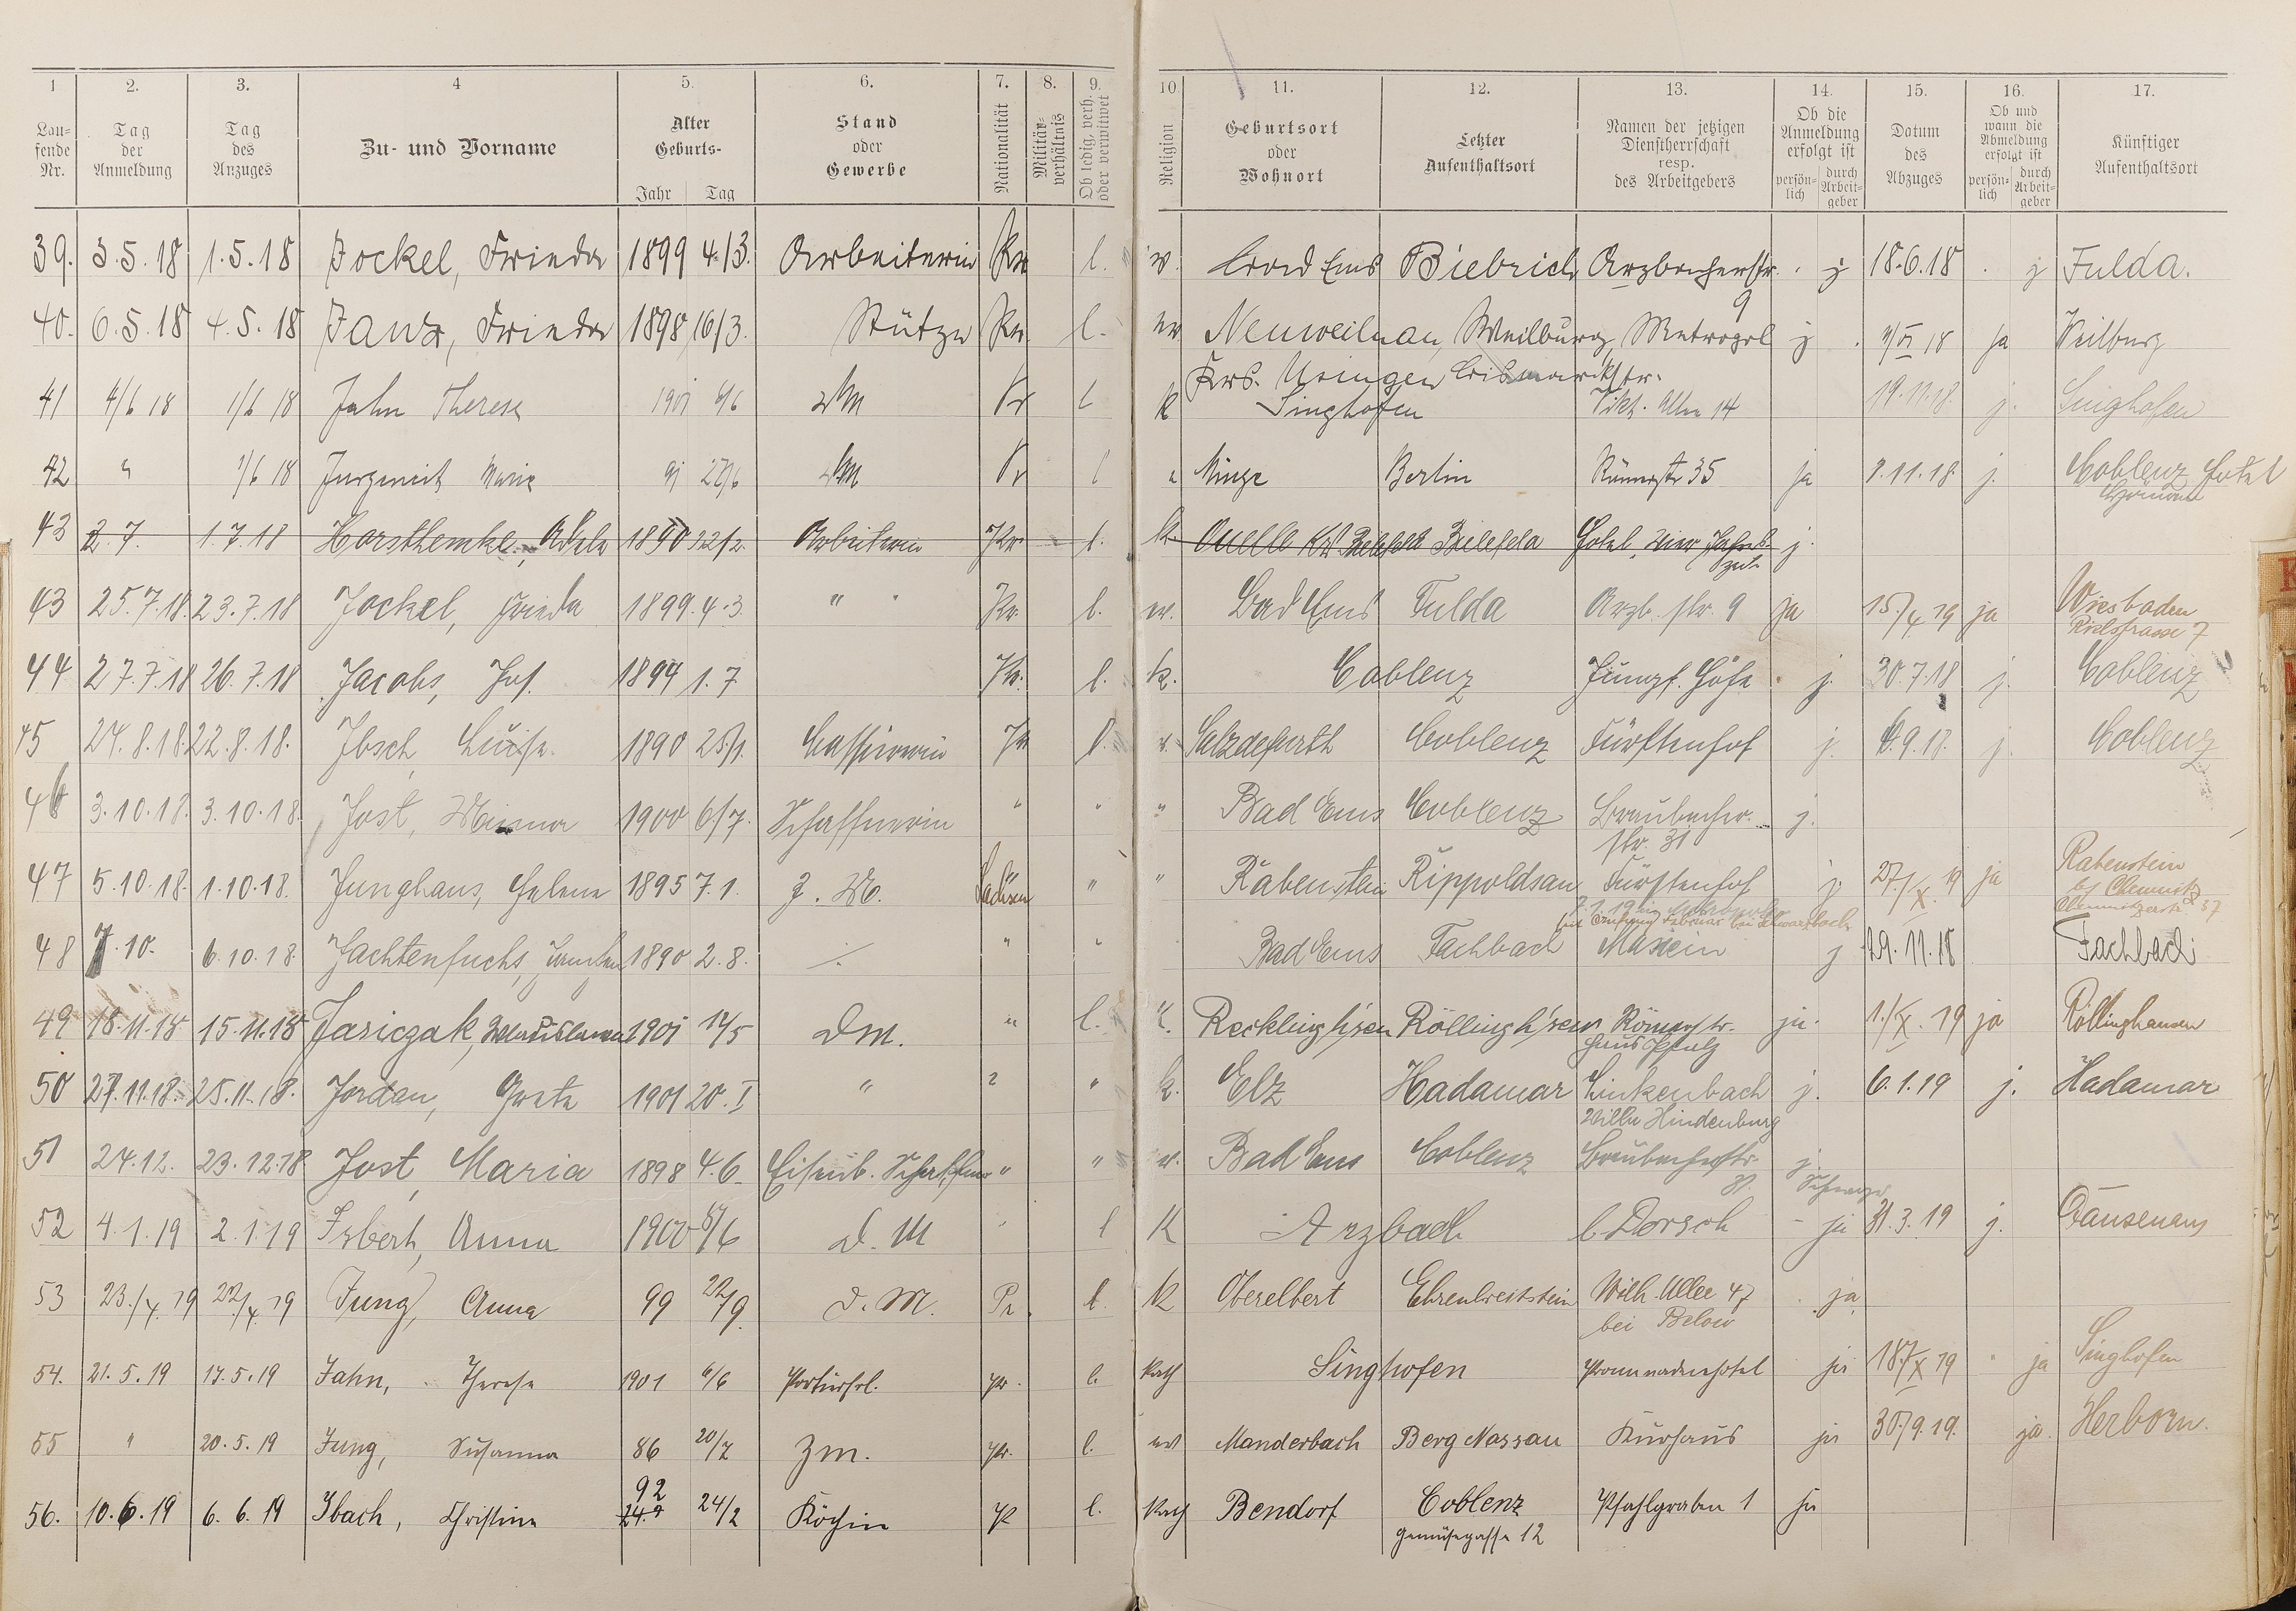 1 2. 3. 4 5. 6. 7. 8. 9. 10. 11. 12. 13. 14. 15. 16. 17.
Lau-fende Nr. Tag der Anmeldung Tag des Anzuges Zu- und Vorname Alter Geburts- Jahr Tag Stand oder Gewerbe Nationalität Militär-verhältnis Ob ledig, verh. oder verwitwet Religion Geburtsort oder Wohnort Letzter Aufenthaltsort Namen der jetzigen Dienstherrschaft resp. des Arbeitgebers Ob die Anmeldung erfolgt ist persön-lich durch Arbeit-geber Datum des Abzuges Ob und wann die Abmeldung erfolgt ist persön-lich durch Arbeit-geber Künftiger Aufenthaltsort
39. 3.5.18 1.5.18 Jockel, Frieda 1899 4./3. Arbeiterin Pr. l. ev. Bad Ems Biebrich Arzbacherstr. 9 j 18.6.18 j Fulda.
40. 6.5.18 4.5.18 Janz, Frieda 1898 16/3. Stütze Pr. l. ev. Neuweilnau, Weilburg, Metropol j. 18 ja Weilburg
Krs. Usingen Bismarckstr.
41 4/6 18 1/6 18 Jahn Therese 1901 6/6 Pr l k Singhofen Vikt. Allee 14 19.11.18. j. Singhofen
42 " 1/6 18 Jurgeneit Marie 91 27/6 Pr l Minge Berlin Römerstr 35 ja 8.11.18 j. Coblenz Hotel
43 2.7. 1.7.18 Horsthemke, Adele 1890 22/2. Arbeiterin Pr. l. k. Quelle Krs Bielefeld Bielefeld Hotel vier Jahres-zeit. j.
43 25.7.18. 23.7.18 Jockel, Frieda 1899. 4.3. " " Pr. l. ev. Bad Ems Fulda Arzb. str. 9 ja 15./4 19 ja Wiesbaden
Rielstrasse 7
44 27.7.18 26.7.18 Jacobs, Jos. 1894 1.7 Pr. l. k. Coblenz Jungf. Höhe j. 30.7.18 j. Coblenz
45 24.8.18. 22.8.18. Ibsch, Luise. 1890 25/1. Cassiererin Pr l. Salzdefurth Coblenz Fürstenhof j. 6.9.18. j. Coblenz
46 3.10.18. 3.10.18. Jost, Minna 1900 6/7. Schaffnerin " " " Bad Ems Coblenz Braubacher-str. 31 j.
47 5.10.18. 1.10.18. Junghans, Helene 1895 7.1. Z. M. Sachsen " " Rabenstein Rippoldsau Fürstenhof j. 27./X. 19 ja Rabenstein
b/ Chemnitz
Chemnitzerstr. 37
48 7.10. 6.10.18. Jachtenfuchs, 1890 2.8. ./. " " Bad Ems Fachbach j 29.11.18 Fachbach
49 18.11.18 15.11.18 Jasiczak, Wladislawa 1901 12/5 Dm. " l. k. Recklingh'sen Röllingh'sen Römerstr. ja. 1./X. 19 ja Röllinghausen
Haus Pfalz
50 27.11.18. 25.11.18. Jordan, Greta 1901 20.I " " " k. Elz Hadamar Linkenbach j. 6.1.19 j. Hadamar
Villa Hindenburg
51 24.12. 23.12.18 Jost, Maria 1898 4.6. Eisenb. Schaffner " " ev. Bad Ems Coblenz Braubacherstr. 31. j.
52 4.1.19 2.1.19 Isbert, Anna 1900 D. M " l K Arzbach b Dorsch - ja 31.3.19 j. Dausenau
53 23./4. 19 22./4. 19 Jung, Anna 99 22/9. D. M. Pr. l. K Oberelbert Ehrenbreitstein Wilh. Allee 47 ja
bei Below
54. 21.5.19 17.5.19 Jahn, Therese 1901 6/6 Portierfrl. Pr. l. Kath Singhofen Promenadenhotel ja 18./X 19 " ja Singhofen
55 " 20.5.19 Jung, Susanna 86 20/7 Zm. Pr. l. ev Manderbach Berg Nassau Kurhaus ja 30./9.19. ja. Herborn.
56. 10.6.19 6.6.19 Ibach, Christine 92 24/2 Köchin P l. Kath Bendorf Coblenz Pfahlgraben 1 ja
Gemüsegasse 12